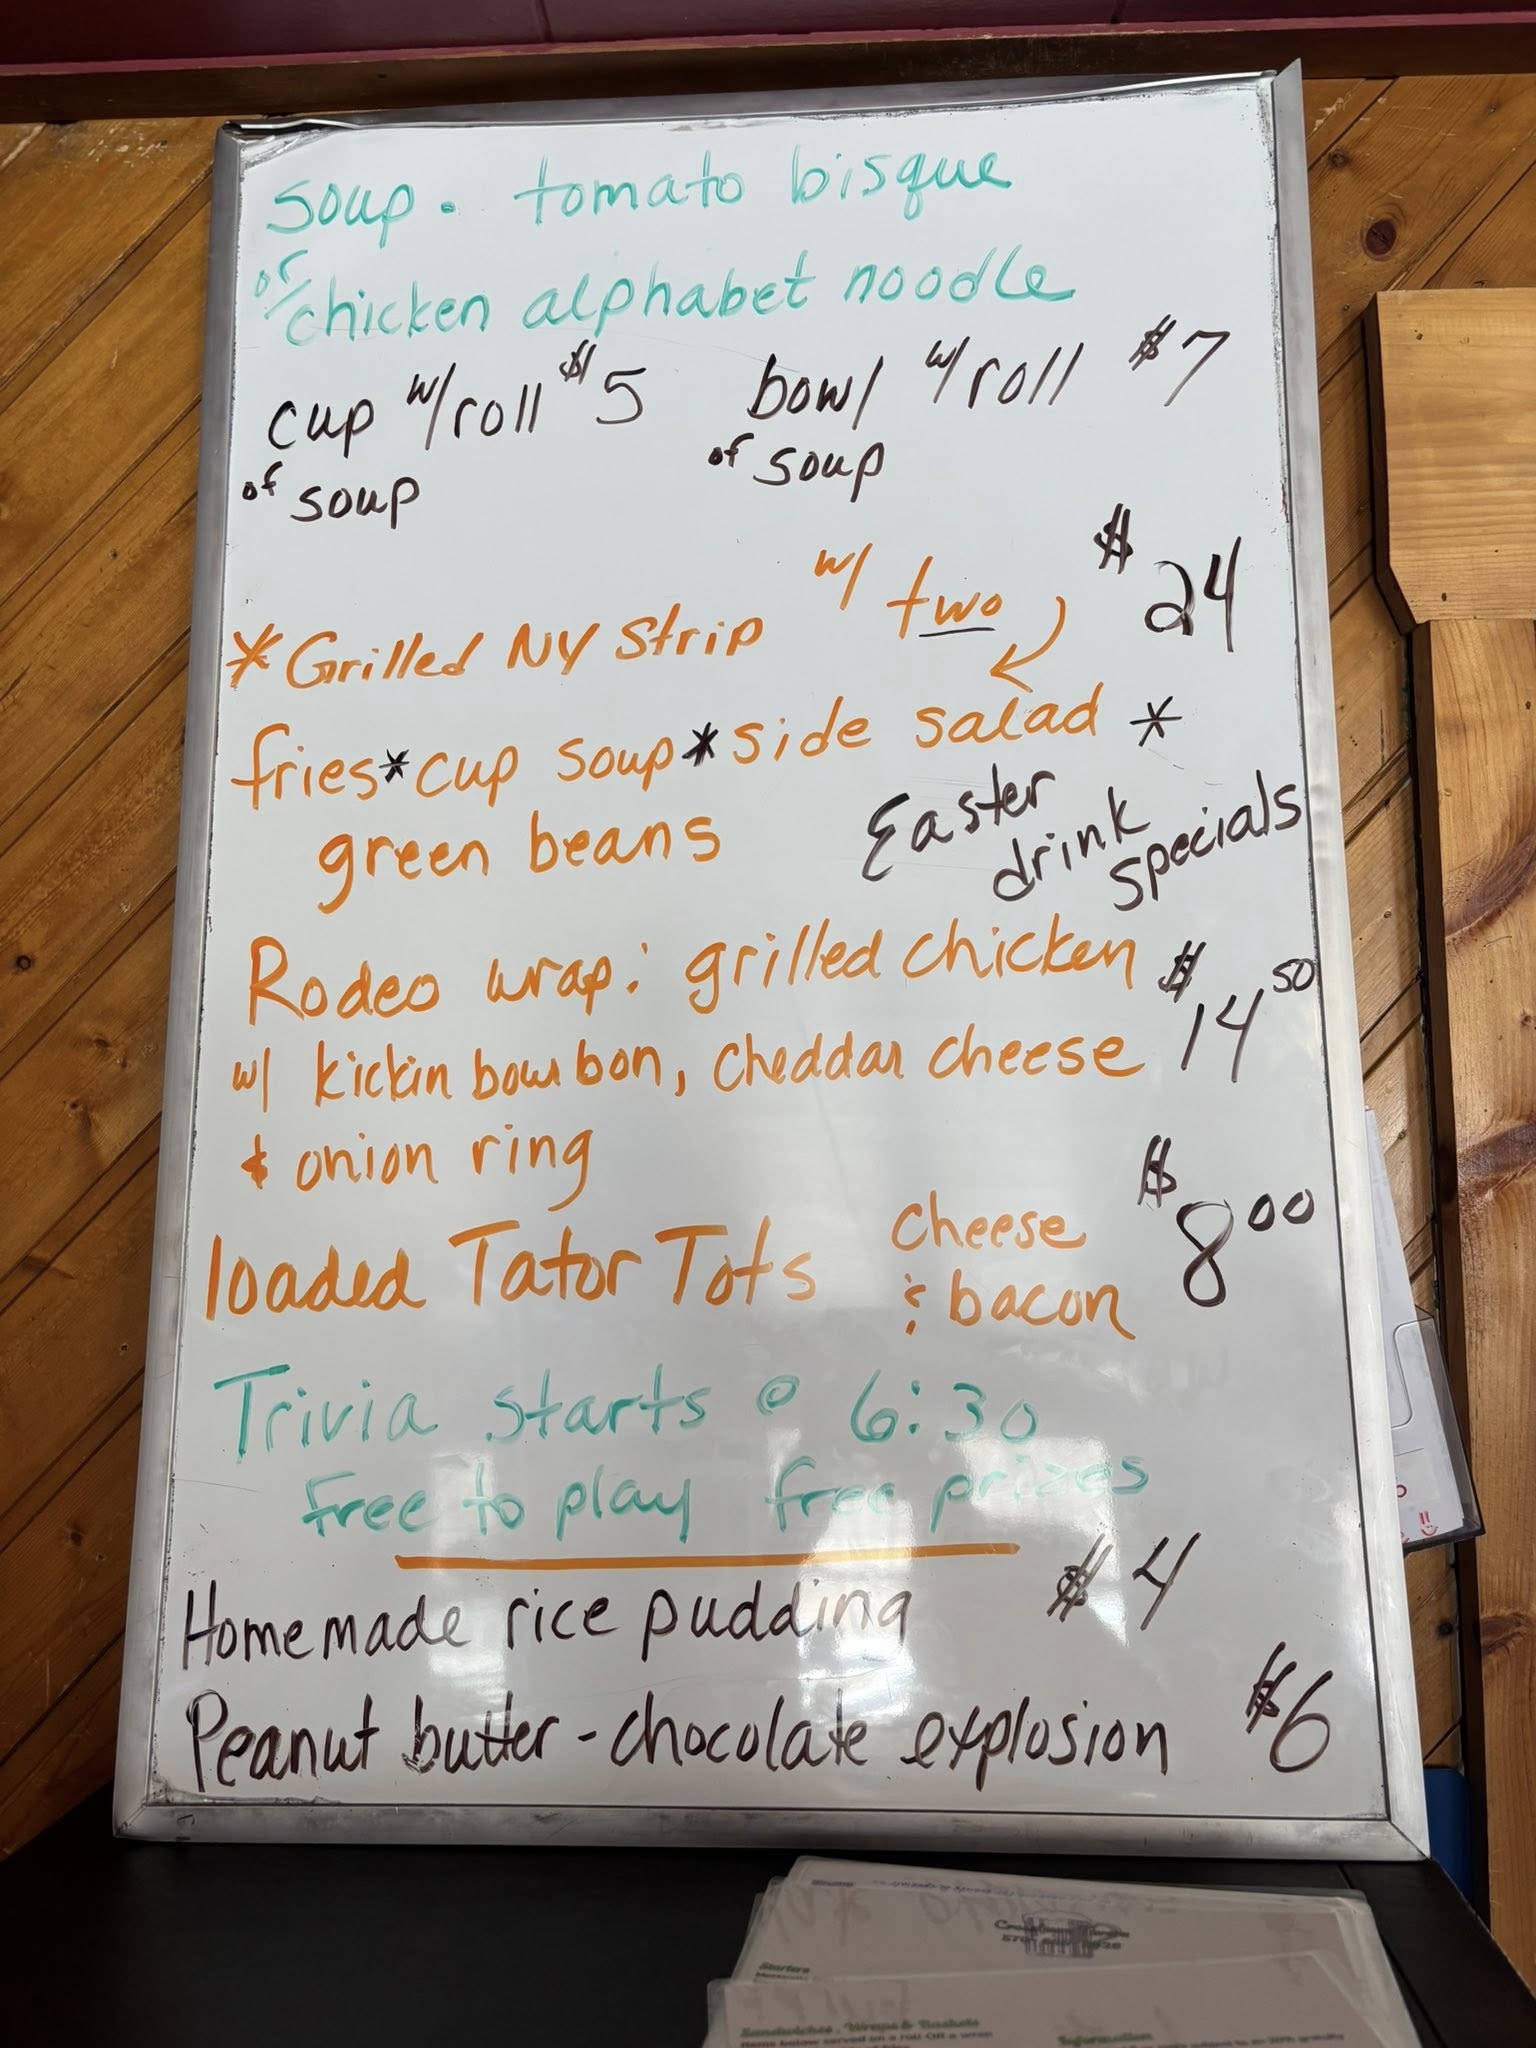 soup. tomato bisque
or/chicken alphabet noodle
cup w/roll $5 bowl w/roll $7
of soup of soup
*Grilled NY Strip w/ two $24
fries*cup soup*side salad *
green beans
Easter drink specials
Rodeo wrap: grilled chicken $14 50
w/ kickin bourbon, cheddar cheese
& onion ring
loaded Tator Tots cheese & bacon $8 00
Trivia starts @ 6:30
Free to play free prizes
Homemade rice pudding $4
Peanut butter-chocolate explosion $6
Starters
Sandwiches, Wraps & Baskets
Items below served on a roll OR a wrap
Information